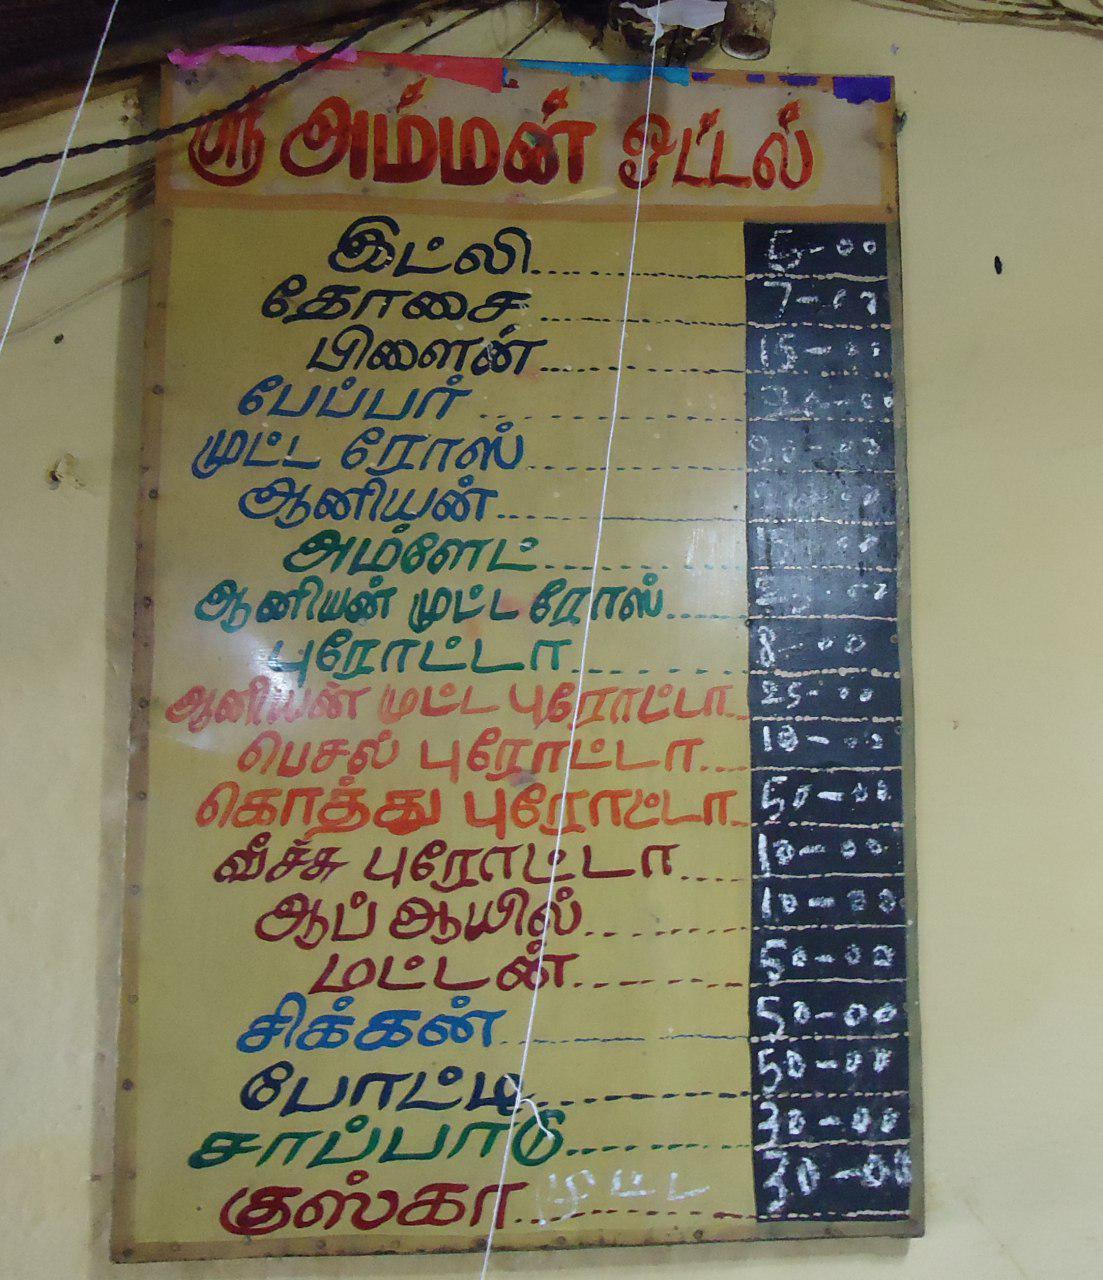 ஸ்ரீ அம்மன் ஓட்டல்
இட்லி 5-00
தோசை 7-00
பிளைன் 15-00
பேப்பர்
முட்ட ரோஸ்
ஆனியன்
அம்ளேட்
ஆனியன் முட்ட ரோஸ்
புரோட்டா 8-00
ஆனியன் முட்ட புரோட்டா 25-00
பெசல் புரோட்டா 10-00
கொத்து புரோட்டா 50-00
வீச்சு புரோட்டா 10-00
ஆப் ஆயில் 10-00
மட்டன் 50-00
சிக்கன் 50-00
போட்டி 50-00
சாப்பாடு 30-00
குஸ்கா முட்ட 30-00